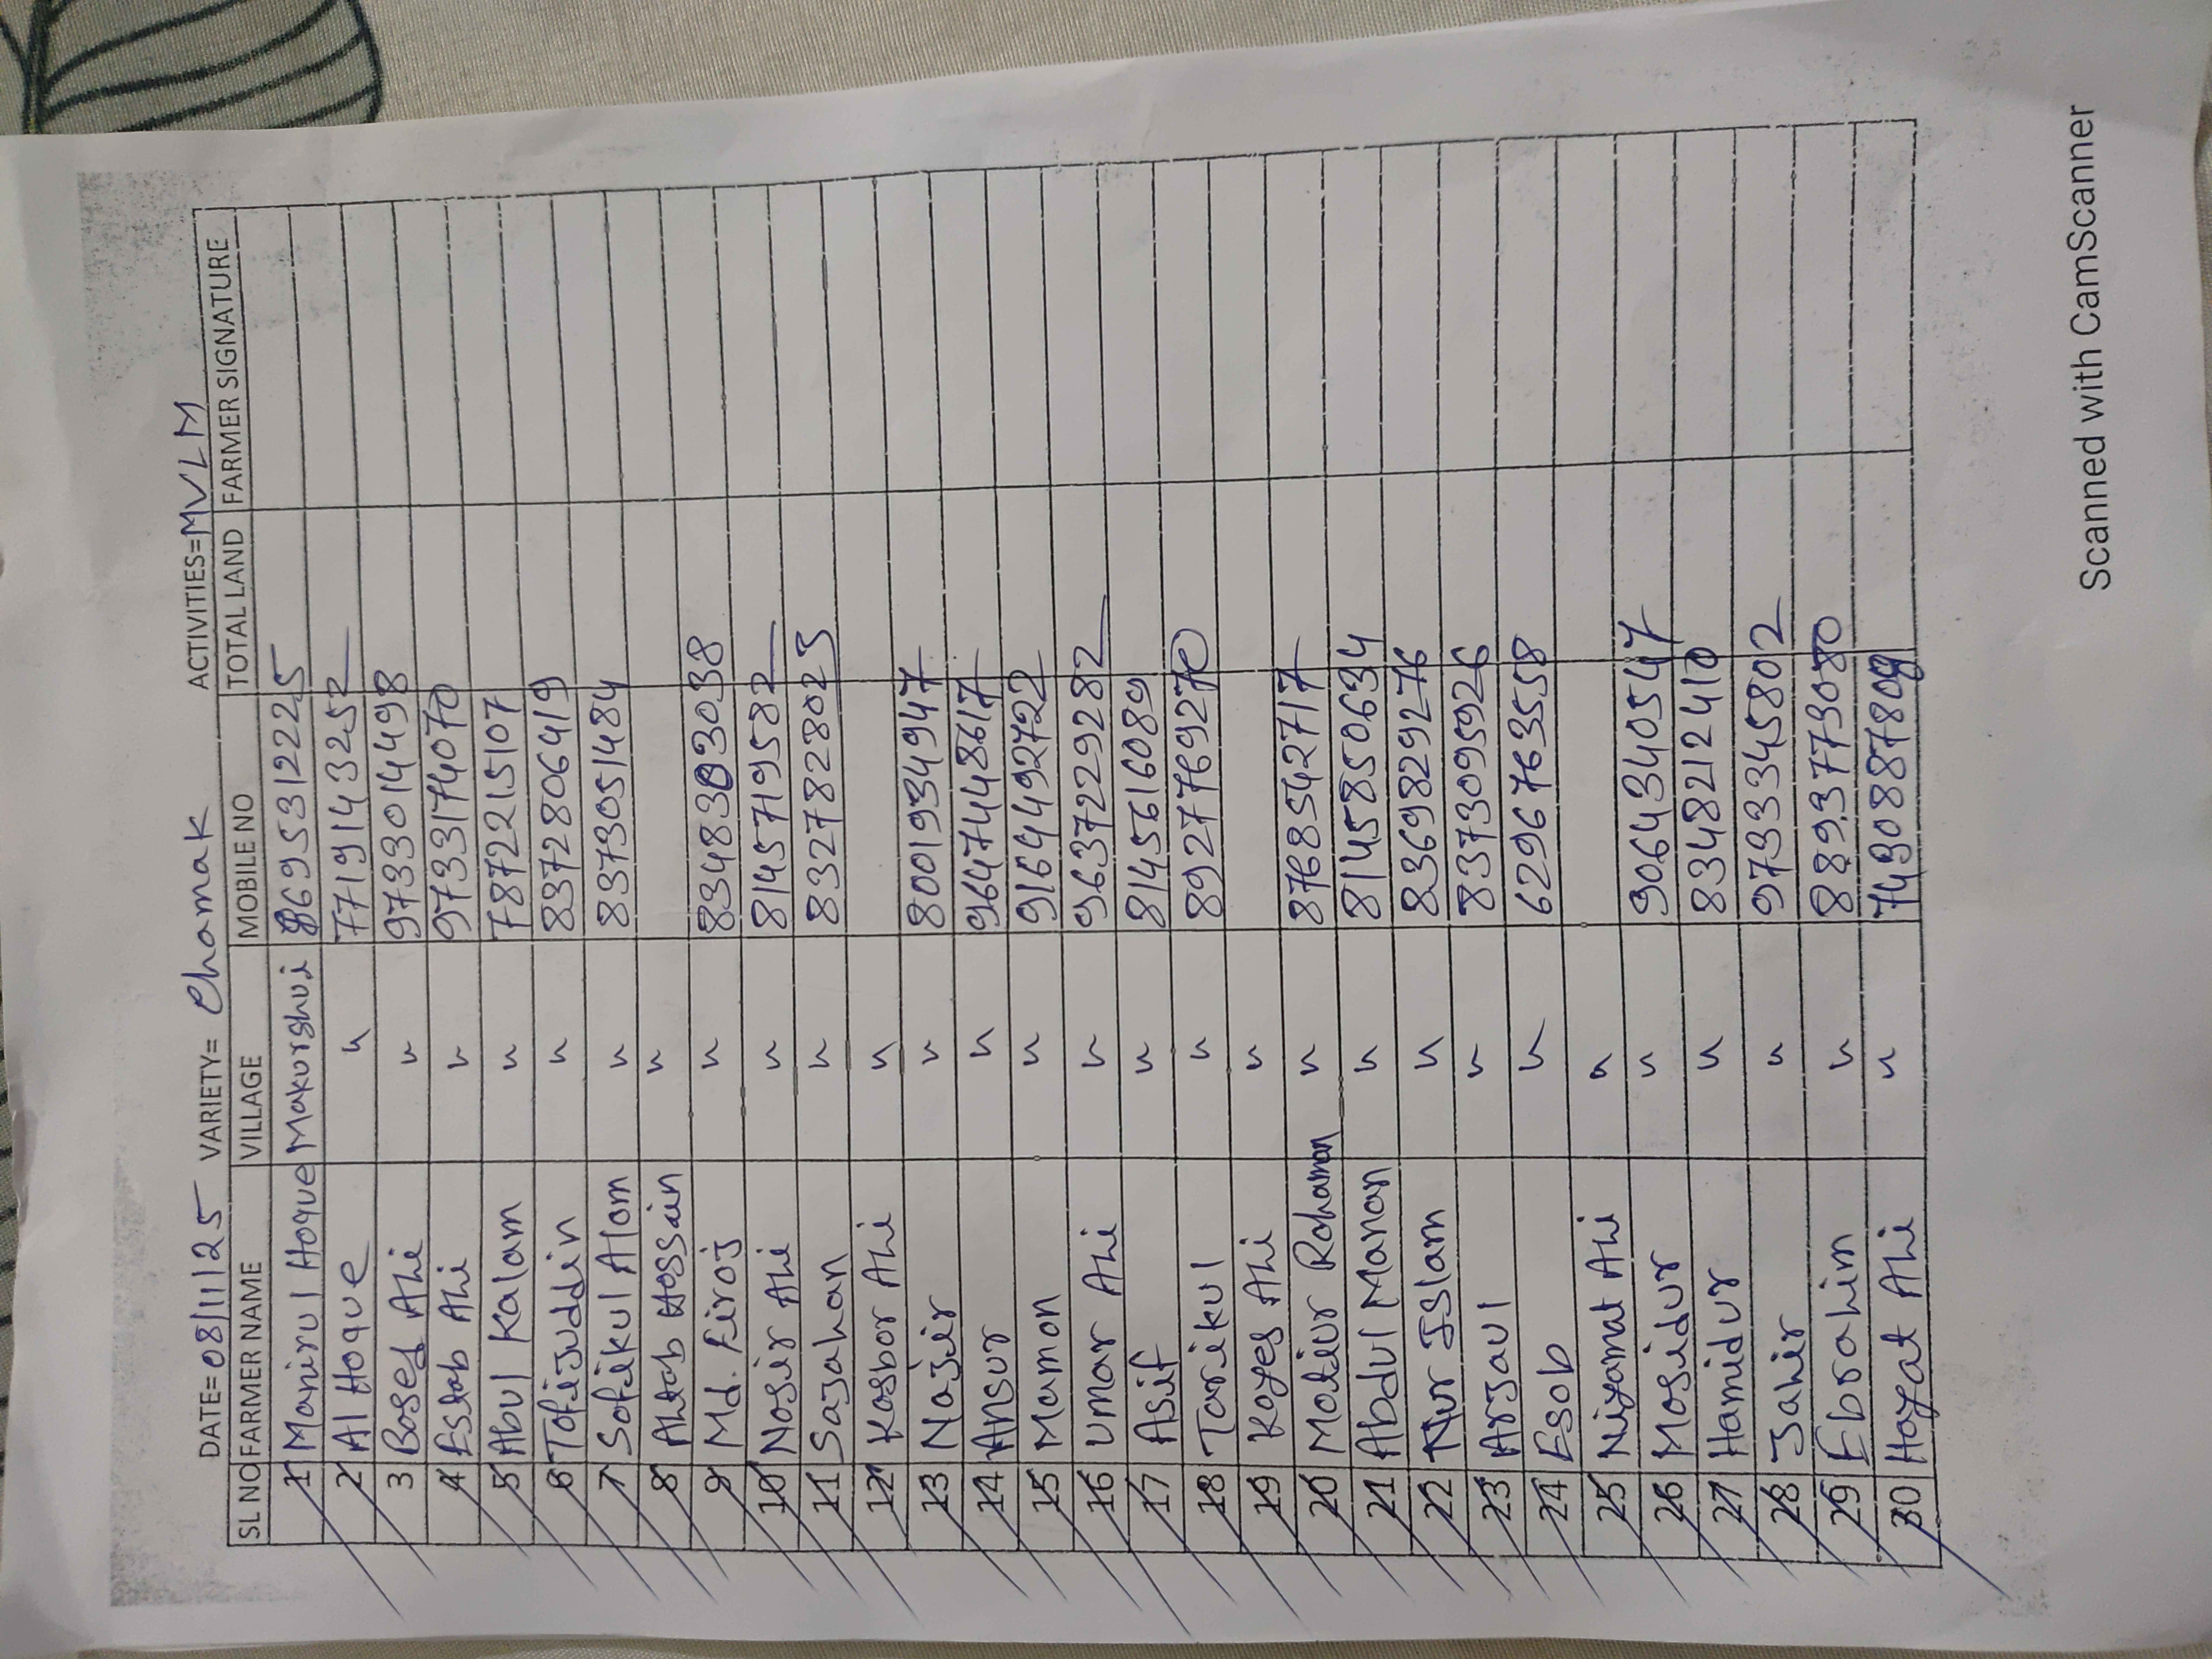 DATE=08/11/25 VARIETY= Chamak ACTIVITIES=MVLM
SL NO FARMER NAME VILLAGE MOBILE NO TOTAL LAND FARMER SIGNATURE
1 Manirul Hoque Makurshui 8695312225
2 Al Hoque " 7719143252
3 Bosed Ali " 9733014498
4 Estab Ali " 9733174070
5 Abul Kalam " 7872215107
6 Tofijuddin " 8372806419
7 Sofikul Alom " 8373051484
8 Ahtab Hossain "
9 Md. Firoj " 8348303038
10 Nosir Ali " 8145719582
11 Sajahan " 8327828025
12 Kosbor Ali "
13 Najir " 8001934947
14 Ansur " 9647448617
15 Mamon " 9164492722
16 Umar Ali " 9637229282
17 Asif " 8145616089
18 Tarikul " 8927769270
19 Koyes Ali "
20 Motiur Rohaman " 8768542717
21 Abdul Manan " 8145850634
22 Nur Islam " 8369829276
23 Arjaul " 8373095926
24 Esob " 6296763558
25 Niyamat Ali "
26 Mosidur " 9064340547
27 Hamidur " 8348212410
28 Jahir " 9733345802
29 Ebrahim " 8893773080
30 Hoyat Ali " 7430887809
Scanned with CamScanner